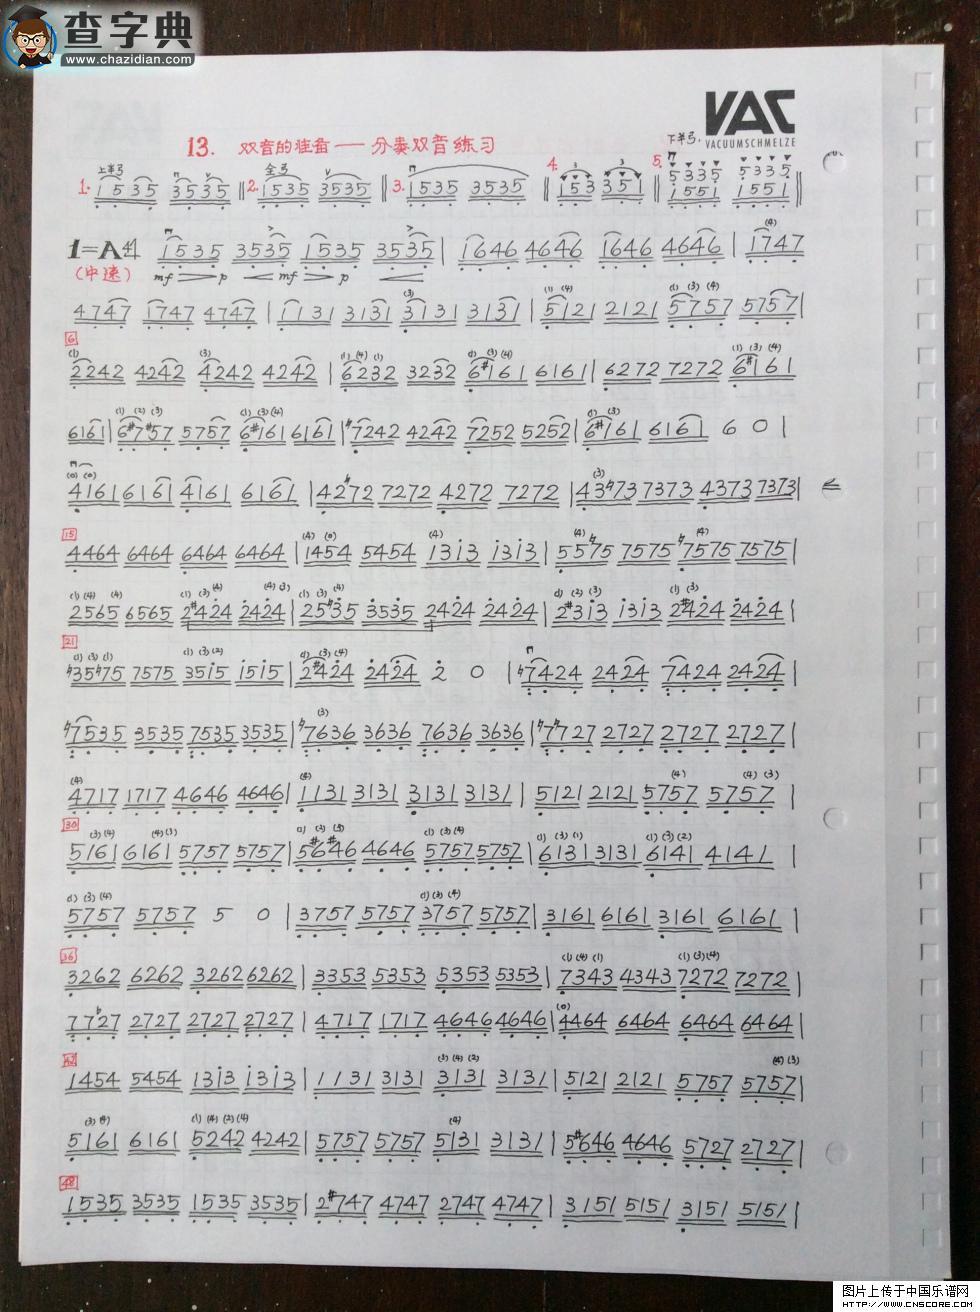 查字典
www.chazidian.com
VAC
VACUUMSCHMELZE
13. 双音的准备——分奏双音练习
上半弓 全弓 下半弓.
1. 1535 3535 2. 1535 3535 3. 1535 3535 4. 153 351 5. 5335 5335
1551 1551
1=A 4/4 1535 3535 1535 3535 | 1646 4646 1646 4646 | 1747
(中速) mf p mf p
4747 1747 4747 | 1131 3131 3131 3131 | 5121 2121 5757 5757 |
6
2242 4242 4242 4242 | 6232 3232 6#161 6161 | 6272 7272 6#161
6161 | 6#7#57 5757 6#161 6161 | ♮7242 4242 7252 5252 | 6#161 6161 6 0 |
4161 6161 4161 6161 | 42♮72 7272 4272 7272 | 43♮73 7373 4373 7373 |
15
4464 6464 6464 6464 | 1454 5454 1313 1313 | 55♮75 7575 ♮7575 7575 |
2565 6565 2#424 2424 | 25♮35 3535 2424 2424 | 2#313 1313 2#424 2424 |
21
♮35♮75 7575 3515 1515 | 2#424 2424 2 0 | ♮7424 2424 7424 2424 |
♮7535 3535 7535 3535 | ♮7636 3636 7636 3636 | ♮7♮727 2727 2727 2727 |
4717 1717 4646 4646 | 1131 3131 3131 3131 | 5121 2121 5757 5757 |
30
5161 6161 5757 5757 | 5#6#46 4646 5757 5757 | 6131 3131 6141 4141 |
5757 5757 5 0 | 3757 5757 3757 5757 | 3161 6161 3161 6161 |
36
3262 6262 3262 6262 | 3353 5353 5353 5353 | 7343 4343 7272 7272 |
7727 2727 2727 2727 | 4717 1717 4646 4646 | 4464 6464 6464 6464 |
42
1454 5454 1313 1313 | 1131 3131 3131 3131 | 5121 2121 5757 5757 |
5161 6161 5242 4242 | 5757 5757 5131 3131 | 5#646 4646 5727 2727 |
48
1535 3535 1535 3535 | 2#747 4747 2747 4747 | 3151 5151 3151 5151 |
图片上传于中国乐谱网
HTTP://WWW.CNSCORE.COM